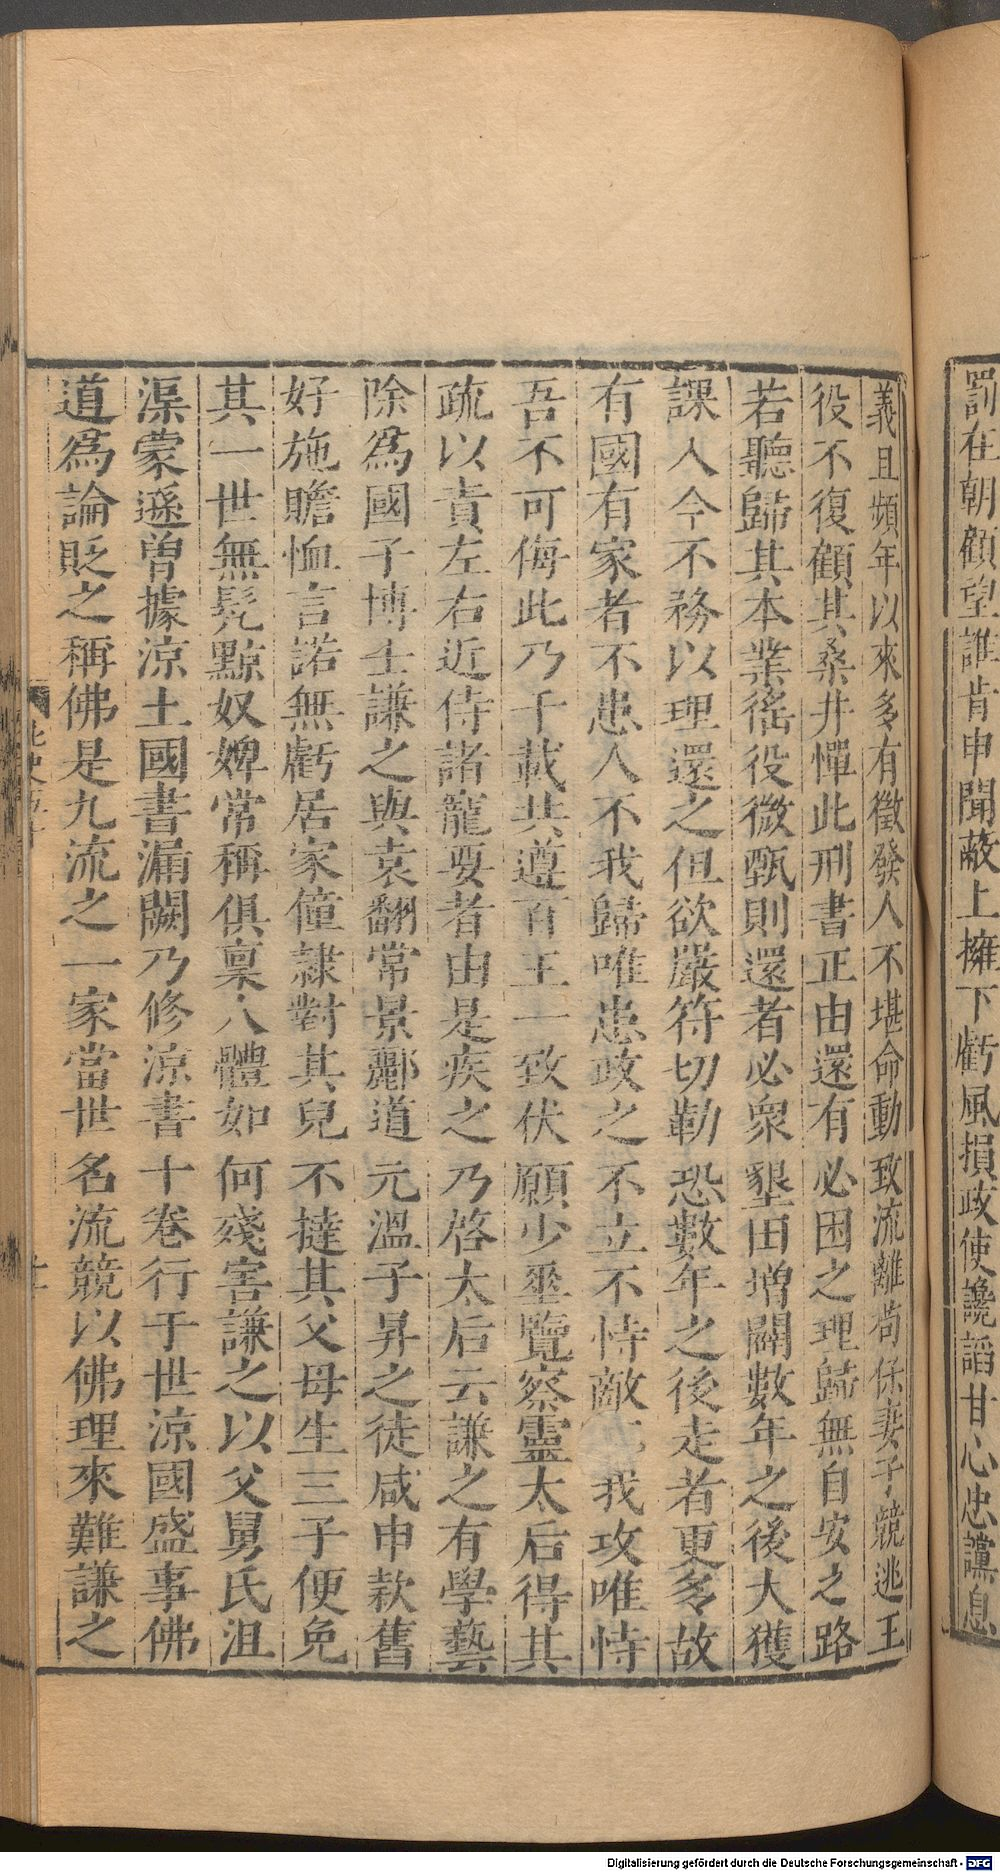 罰在朝顧望誰肯申聞蔽上擁下虧風損政使讒謟甘心忠讜息
義且頻年以來多有徵發人不堪命動致流離苟保妻子競逃王
役不復顧其桑井憚此刑書正由還有必困之理歸無自安之路
若聽歸其本業徭役微甄則還者必衆墾田增闢數年之後大獲
課人今不務以理還之但欲嚴符切勒恐數年之後走者更多故
有國有家者不患人不我歸唯患政之不立不恃敵不我攻唯恃
吾不可侮此乃千載共遵百王一致伏願少垂覽察靈太后得其
疏以責左右近侍諸寵要者由是疾之乃啓太后云謙之有學藝
除爲國子博士謙之與袁翻常景酈道元溫子昇之徒咸申款舊
好施贍恤言諾無虧居家僮隷對其兒不撻其父母生三子便免
其一世無髡黥奴婢常稱俱稟人體如何殘害謙之以父舅氏沮
渠蒙遜曾據涼土國書漏闕乃修涼書十卷行于世涼國盛事佛
道爲論貶之稱佛是九流之一家當世名流競以佛理來難謙之
北史
Digitalisierung gefördert durch die Deutsche Forschungsgemeinschaft - DFG